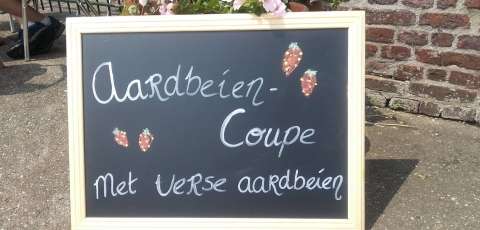 Aardbeien-
Coupe
Met verse aardbeien